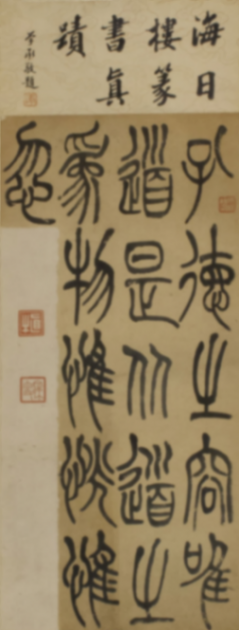 海日
樓篆
書真
蹟
孔德之容唯
道是从道之
為物惟恍惟
忽